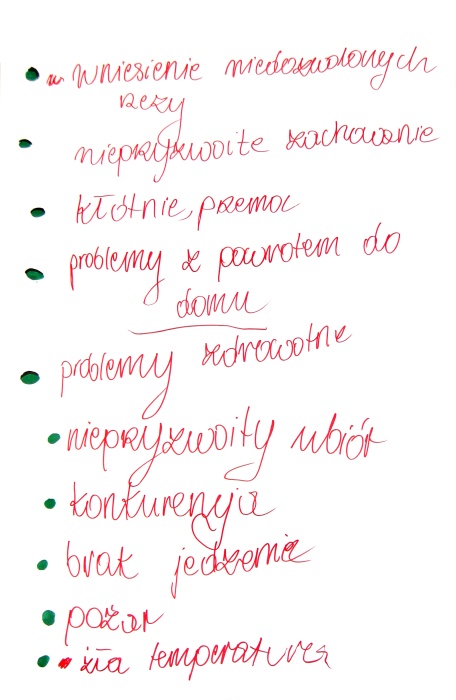 wniesienie niedozwolonych
rzezy
nieprzyzwoite zachowanie
kłótnie, przemoc
problemy z powrotem do
domu
problemy zdrowotne
nieprzyzwoity ubiór
konkurencja
brak jedzenia
pożar
zła temperatura